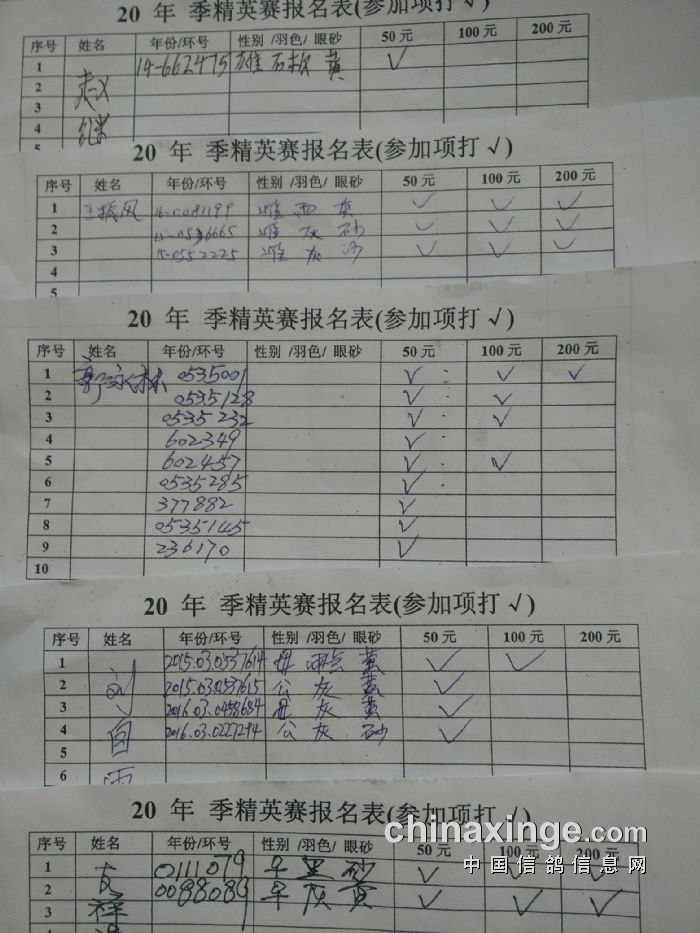 20 年 季精英赛报名表(参加项打 √)
序号 姓名 年份/环号 性别 /羽色/ 眼砂 50 元 100 元 200 元
1 14-662475 雄 石板 黄 √
2 赵
3
4 继
5
20 年 季精英赛报名表(参加项打 √)
序号 姓名 年份/环号 性别 /羽色/ 眼砂 50 元 100 元 200 元
1 王振风 16-0081199 雄 雨 黄 √ √ √
2 15-0536665 雄 灰 砂 √ √ √
3 15-0552225 雄 灰 沙 √ √ √
4
5
20 年 季精英赛报名表(参加项打 √)
序号 姓名 年份/环号 性别 /羽色/ 眼砂 50 元 100 元 200 元
1 郭泳林 0535001 √ √ √
2 0535128 √ √
3 0535232 √ √
4 602349 √
5 602457 √ √
6 0535285 √
7 377882 √
8 0535145 √
9 236170 √
10
20 年 季精英赛报名表(参加项打 √)
序号 姓名 年份/环号 性别 /羽色/ 眼砂 50 元 100 元 200 元
1 2015.03.0537614 母 雨点 黄 √ √
2 刘 2015.03.0537615 公 灰 黄 √
3 2016.03.0458684 母 灰 黄 √
4 自 2016.03.0227294 公 灰 砂 √
5
6 雨
20 年 季精英赛报名表(参加项打 √)
序号 姓名 年份/环号 性别 /羽色/ 眼砂 50 元 100 元 200 元
1 0111079 黑 砂 √ √ √
2 0088083 灰 黄 √ √ √
3 祥
chinaxinge.com
中国信鸽信息网